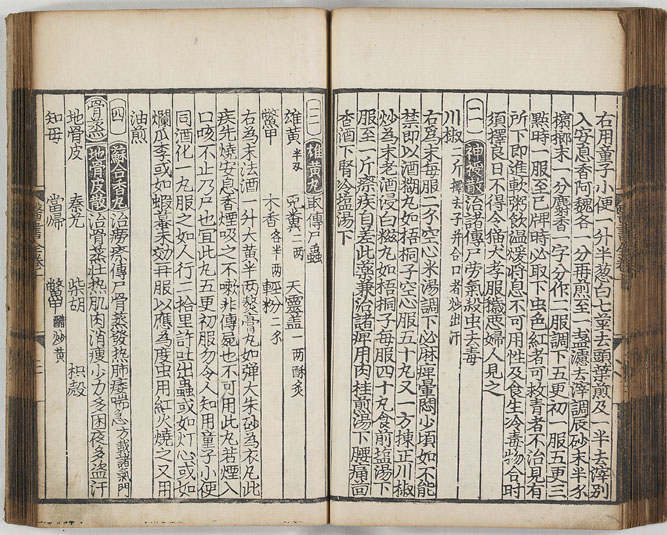 右用童子小便一升半葱白七莖去頭葉煎及一半去滓別
入安息香阿魏各一分再煎至一盞濾去滓調辰砂末半分
檳榔末一分麝香一字分作二服調下五更初一服五更三
點時一服至已牌時必取下虫色紅者可救青者不治見有
所下即進軟粥飲溫煖將息不可用性及食生冷毒物合時
須擇良日不得令猫犬孝服穢惡婦人見之
(一)神授散治諸傳尸勞氣殺虫去毒
川椒二斤擇去子并合口者炒出汗
右爲末每服二分空心米湯調下必麻痺暈悶少頃如不能
禁即以酒糊丸如梧桐子空心服五十丸又一方揀正川椒
炒爲末老酒浸白糕丸如梧桐子每服四十丸食前塩湯下
服至一斤瘵疾自差此藥兼治諸痺用肉桂煎湯下腰痛茴
香酒下腎冷塩湯下
(二)雄黃丸取傳尸蟲
雄黃半兩 兎糞二兩 天靈盖一兩酥炙
鱉甲 木香各半兩 輕粉二分
右爲末法酒一升大黃半兩熬膏丸如弹大朱砂爲衣凡此
疾先燒安息香煙吸之不嗽非傳尸也不可用此丸若煙入
口咳不止乃尸也宜此丸五更初服勿令人知用童子小便
同酒化一丸服之如人行二拾里許吐出蟲或如灯心或如
爛瓜李或如蝦蟇未効再服以應為度虫用紅火燒之又用
油煎
(四)蘇合香丸治勞瘵傳尸骨蒸發熱肺痿喘急方載諸氣門
骨蒸 地骨皮散治骨蒸壯熱肌肉消瘦少力多困夜多盗汗
地骨皮 秦艽 柴胡 枳殼
知母 當歸 鱉甲醋炒黄